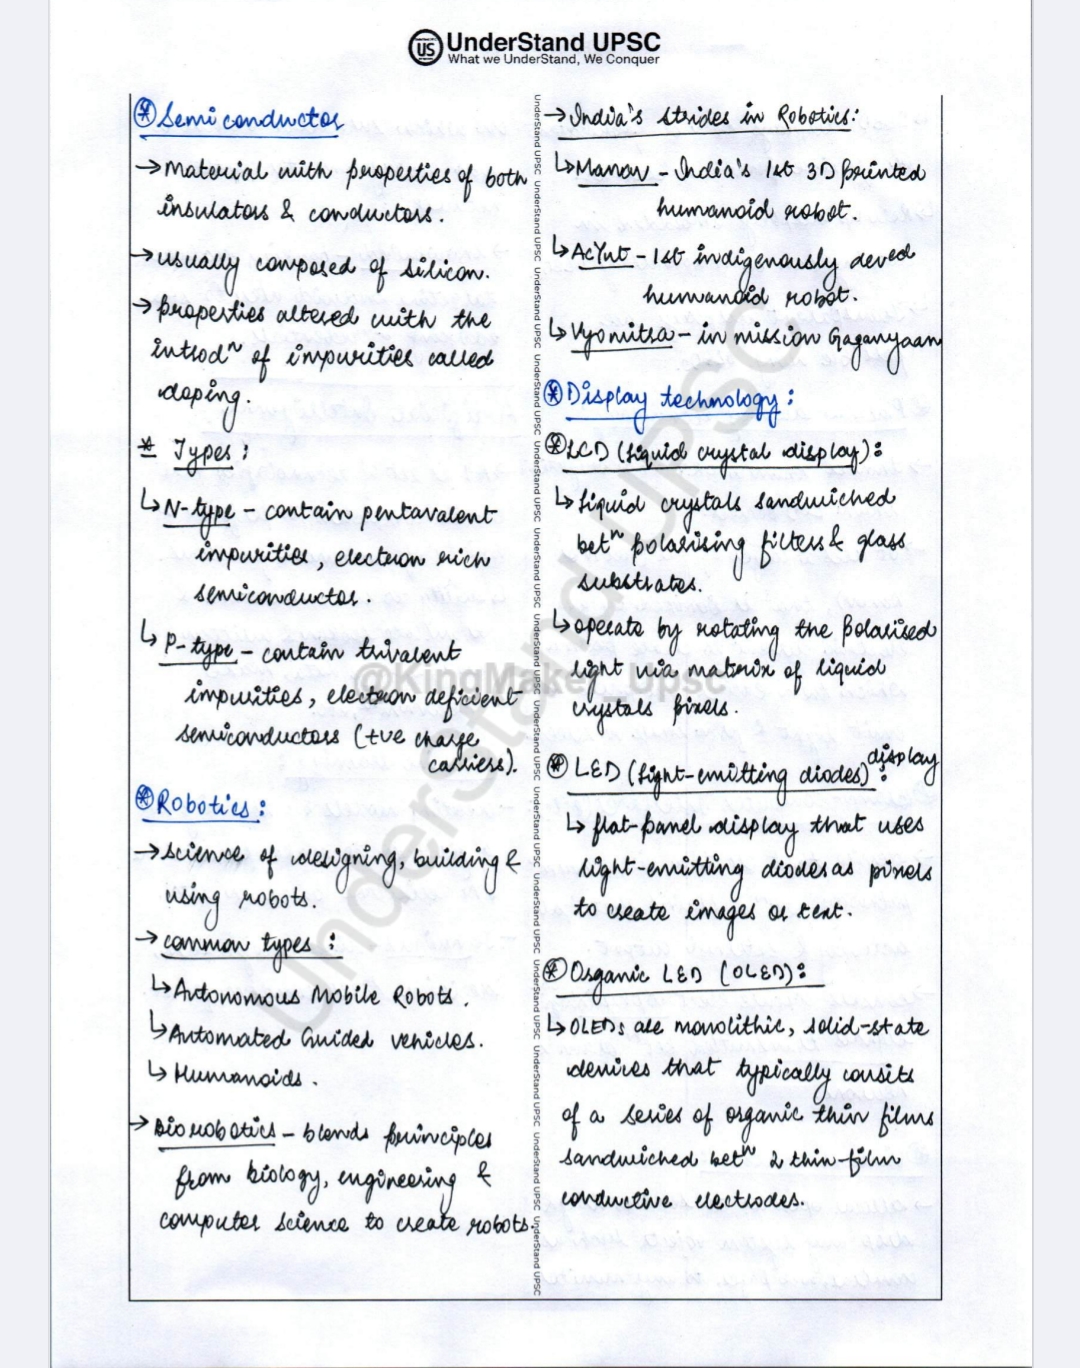 UnderStand UPSC
What we UnderStand, We Conquer
Semiconductor
→ Material with properties of both
insulators & conductors.
→ usually composed of silicon.
→ properties altered with the
introdⁿ of impurities called
doping.
* Types :
↳ N-type - contain pentavalent
impurities, electron rich
semiconductor.
↳ P-type - contain trivalent
impurities, electron deficient
semiconductors (+ve charge
carriers).
Robotics :
→ science of designing, building &
using robots.
→ common types :
↳ Autonomous Mobile Robots.
↳ Automated Guided vehicles.
↳ Humanoids.
→ Biorobotics - blends principles
from biology, engineering &
computer science to create robots.
→ India's strides in Robotics :
↳ Manav - India's 1st 3D printed
humanoid robot.
↳ AcYut - 1st indigenously deved
humanoid robot.
↳ Vyomitra - in mission Gaganyaan
Display technology :
LCD (liquid crystal display) :
↳ liquid crystals sandwiched
betⁿ polarising filters & glass
substrates.
↳ operate by rotating the polarised
light via matrix of liquid
crystals pixels.
LED (light-emitting diodes) display :
↳ flat-panel display that uses
light-emitting diodes as pixels
to create images or text.
Organic LED (OLED) :
↳ OLEDs are monolithic, solid-state
devices that typically consits
of a series of organic thin films
sandwiched betⁿ 2 thin-film
conductive electrodes.
UnderStand UPSC
@KingMaker_Upsc